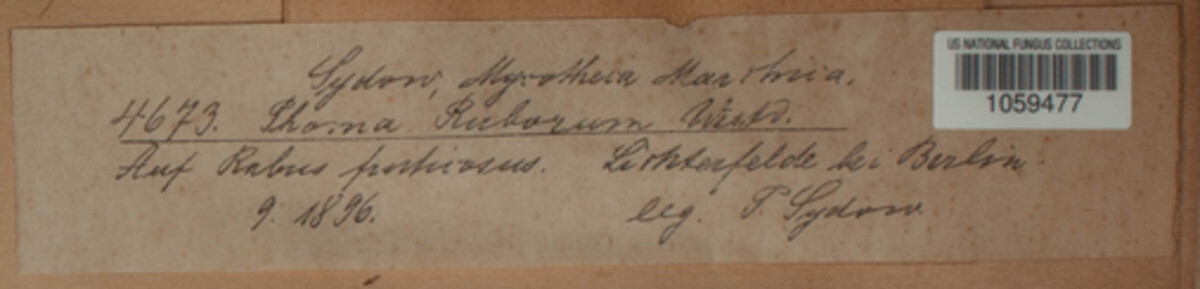 Sydow, Mycotheca Marchica.
4673. Phoma Ruborum Westd.
Auf Rubus fruticosus. Lichterfelde bei Berlin.
9. 1896. leg. P. Sydow.
US NATIONAL FUNGUS COLLECTIONS
1059477